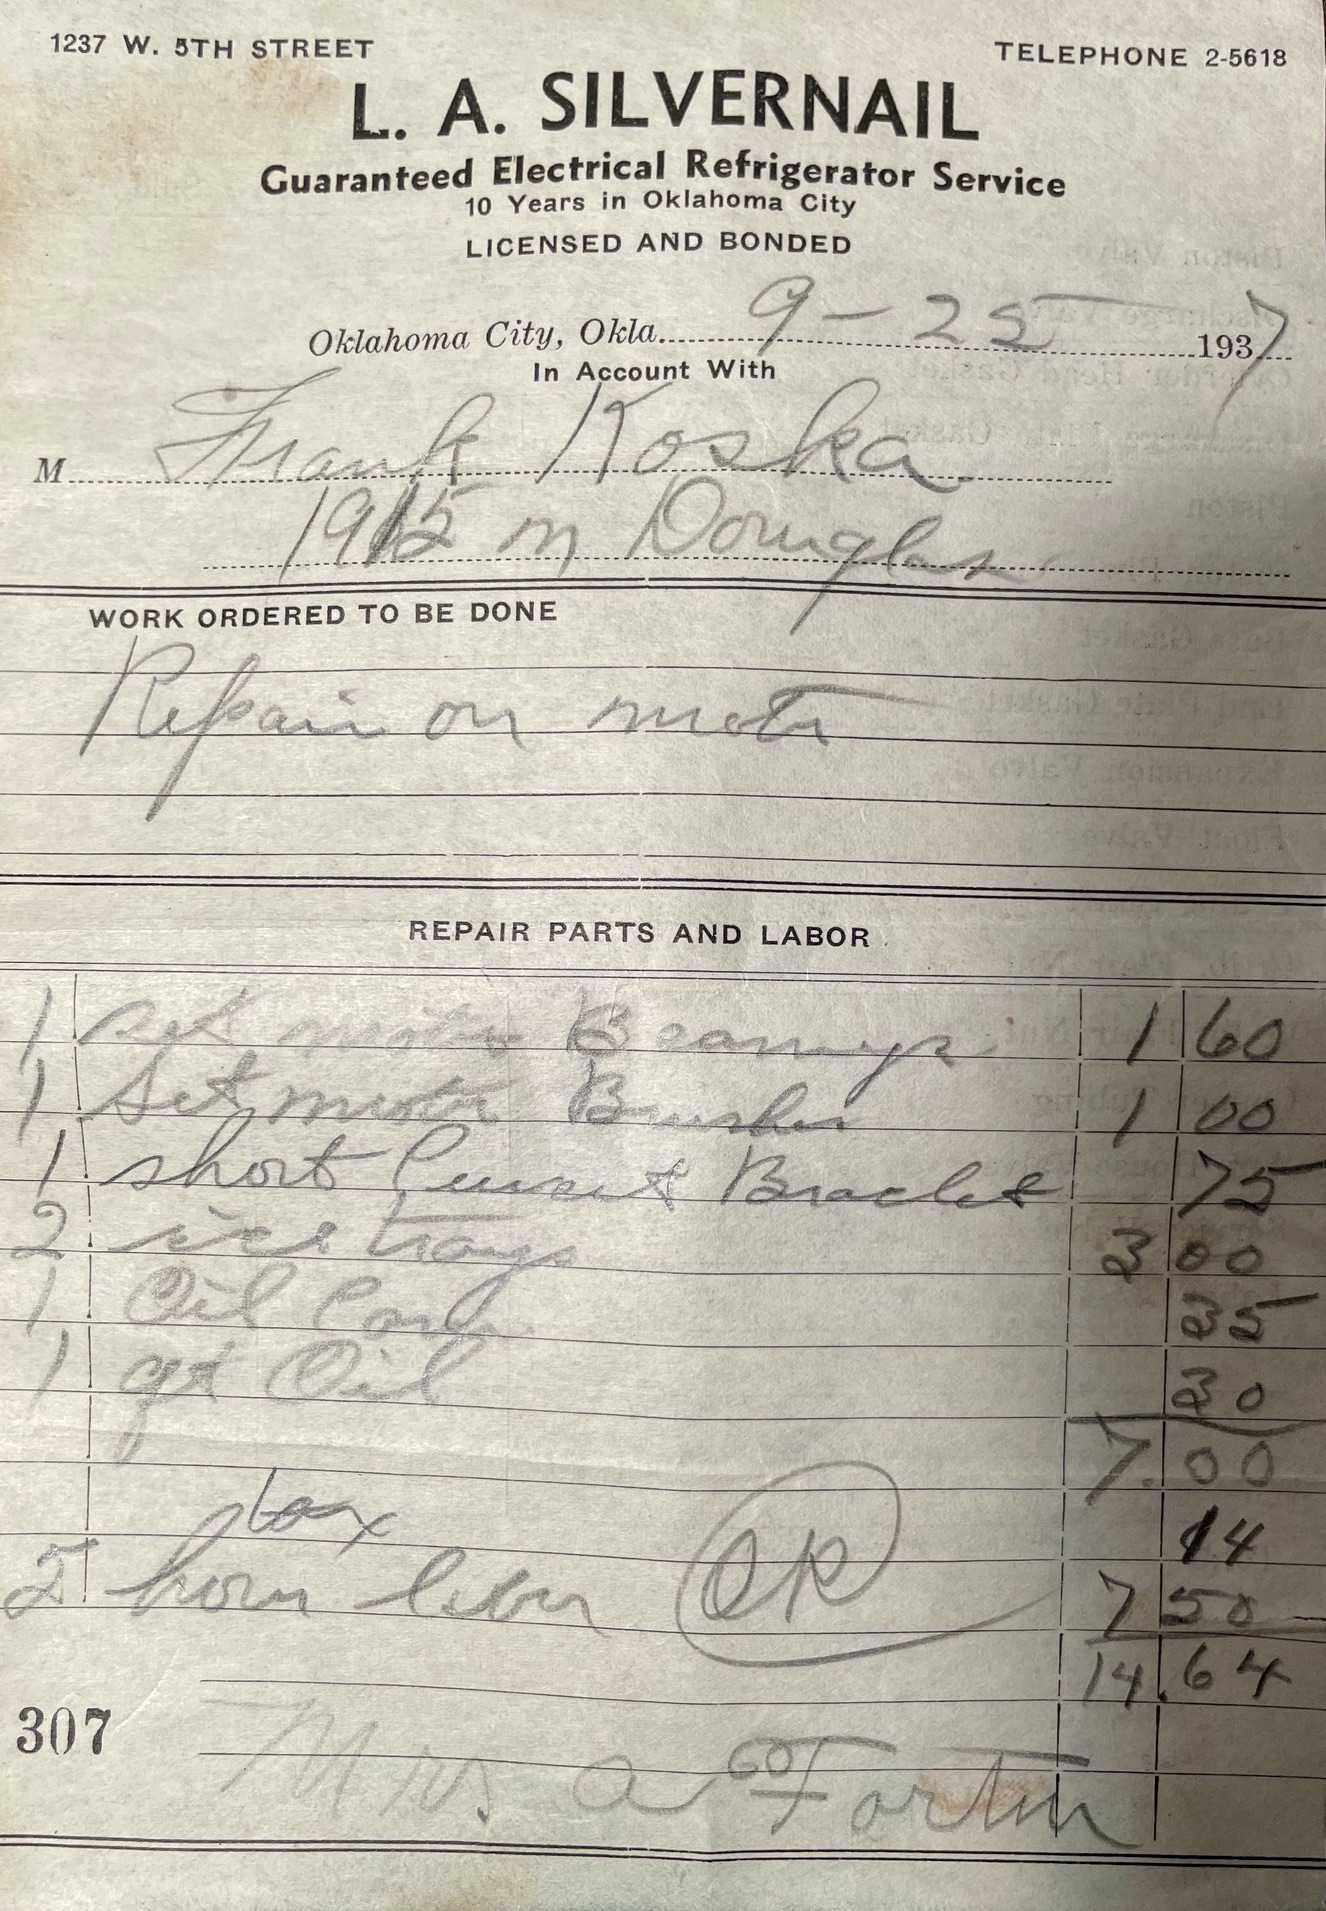 1237 W. 5TH STREET TELEPHONE 2-5618
L. A. SILVERNAIL
Guaranteed Electrical Refrigerator Service
10 Years in Oklahoma City
LICENSED AND BONDED
Oklahoma City, Okla. 9-25 1937
In Account With
M Frank Koska
1915 n Douglas
WORK ORDERED TO BE DONE
Repair on motor
REPAIR PARTS AND LABOR
1 set motor Bearings 1 60
1 Set motor Brushes 1 00
1 short Bracket 75
2 ice trays 3 00
1 Oil Can 35
1 qt Oil 30
7.00
tax 14
5 hour labor OK 7 50
14.64
307
Mrs a